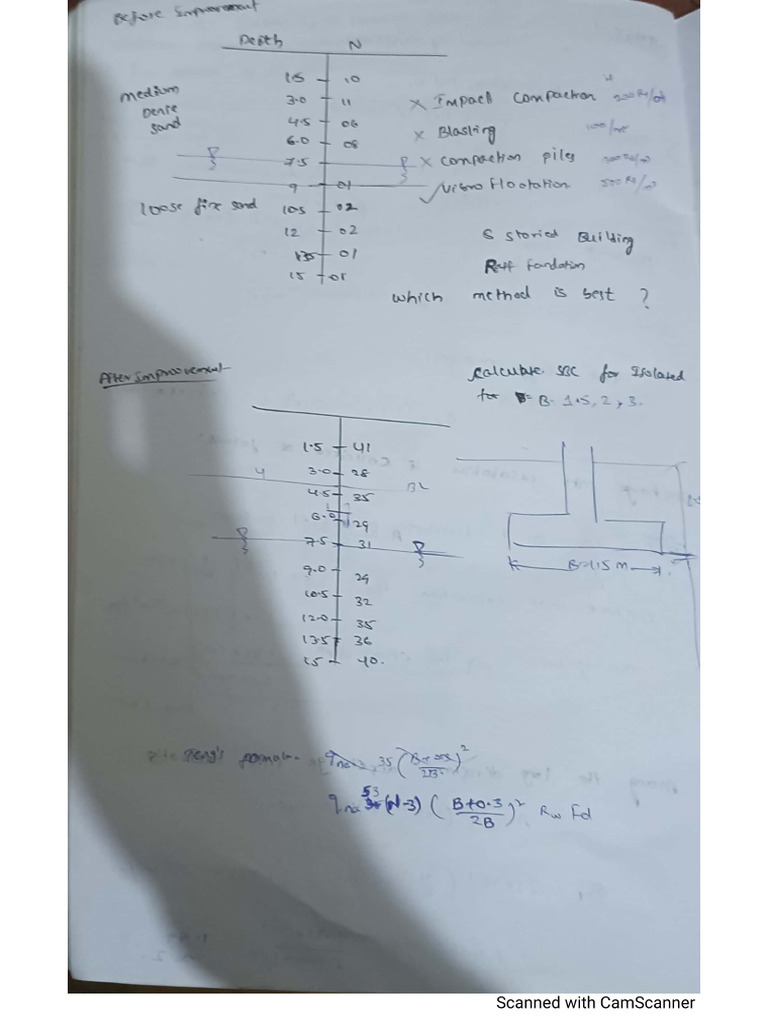 Before Improvement
Depth N
1.5 10
3.0 11
4.5 06
6.0 08
7.5
9 01
10.5 02
12 02
13.5 01
15 01
medium
Dense
sand
loose fine sand
x Impact compaction 200 Rs/
x Blasting 100/
x compaction piles
✓ Vibro flotation 500 Rs/
5 storied Building
Raft Fondation
which method is best ?
After Improovement
calculate SBC for Isolated
for B = 1.5, 2, 3.
1.5 41
3.0 28
4.5 35
6.0 29
7.5 31
9.0 29
10.5 32
12.0 35
13.5 36
15 40.
B=1.5 m
Teng's formula
35 (B+0.3/2B)²
qna 53 (N-3) (B+0.3/2B)² Rw Fd
Scanned with CamScanner